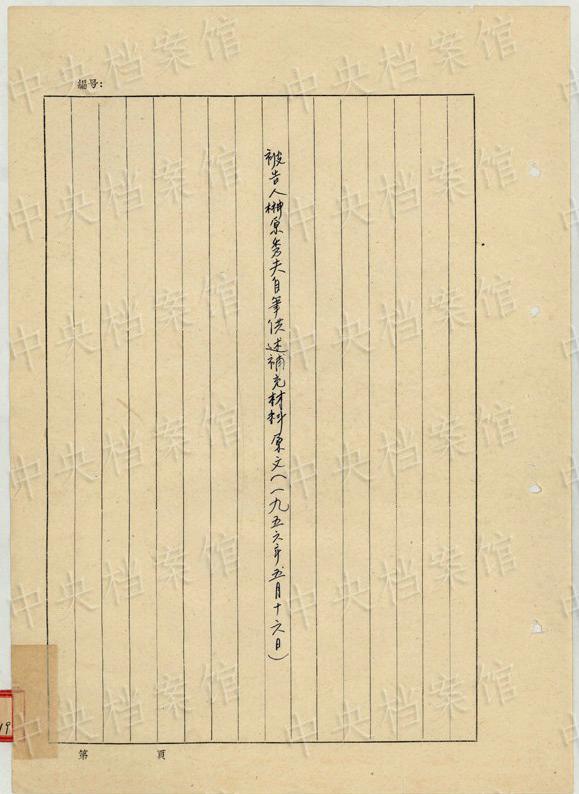 編号:
被告人榊原秀夫自筆供述補充材料原文(一九五六年五月十六日)
第 頁
19
中央档案馆